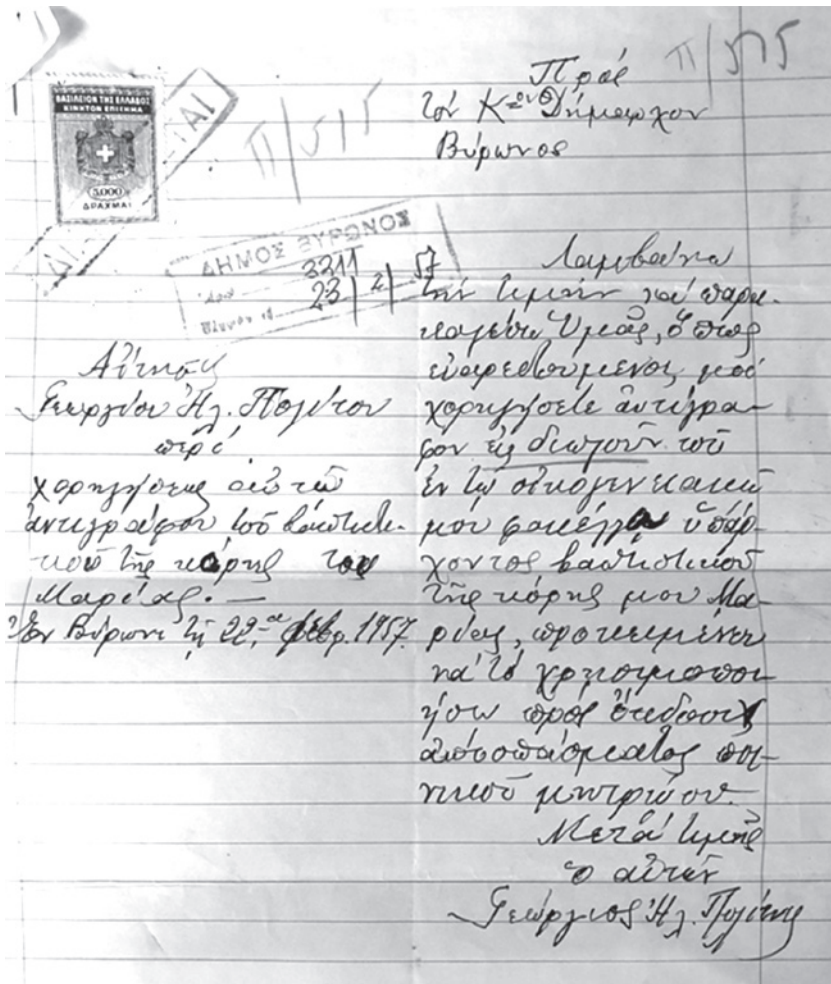 Π/515
ΒΑΣΙΛΕΙΟΝ ΤΗΣ ΕΛΛΑΔΟΣ
ΚΙΝΗΤΟΝ ΕΠΙΣΗΜΑ
5.000
ΔΡΑΧΜΑΙ
Π/515
ΔΗΜΟΣ ΒΥΡΩΝΟΣ
3211
23/2/57
Αἴτησις
Γεωργίου Ἠλ. Πολίτου
περί
χορηγήσεως αὐτῷ
ἀντιγράφου τοῦ βαπτιστι-
κοῦ τῆς κόρης του
Μαρίας.—
Ἐν Βύρωνι τῇ 22.ᾳ Φεβρ. 1957.
Πρός
τόν Κ=ον Δήμαρχον
Βύρωνος
Λαμβάνω
τήν τιμήν νά παρα-
καλέσω Ὑμᾶς, ὅπως
εὐαρεστούμενος μοῦ
χορηγήσετε ἀντίγρα-
φον εἰς διπλοῦν τοῦ
ἐν τῷ οἰκογενειακῷ
μου φακέλλῳ ὑπάρ-
χοντος βαπτιστικοῦ
τῆς κόρης μου Μα-
ρίας, προκειμένου
νά τό χρησιμοποι-
ήσω πρός ἔκδοσιν
ἀποσπάσματος ποι-
νικοῦ μητρώου.
Μετά τιμῆς
ὁ αἰτῶν
Γεώργιος Ἠλ. Πολίτης